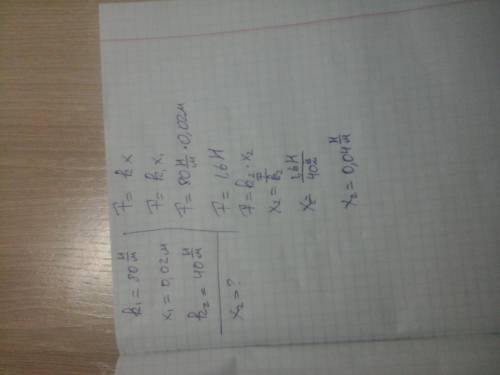 k₁ = 80 Н/м
x₁ = 0,02 м
k₂ = 40 Н/м
x₂ = ?
F = kx
F = k₁x₁
F = 80 Н/м · 0,02 м
F = 1,6 Н
F = k₂ · x₂
x₂ = F/k₂
x₂ = 1,6 Н / 40 Н/м
x₂ = 0,04 Н/м